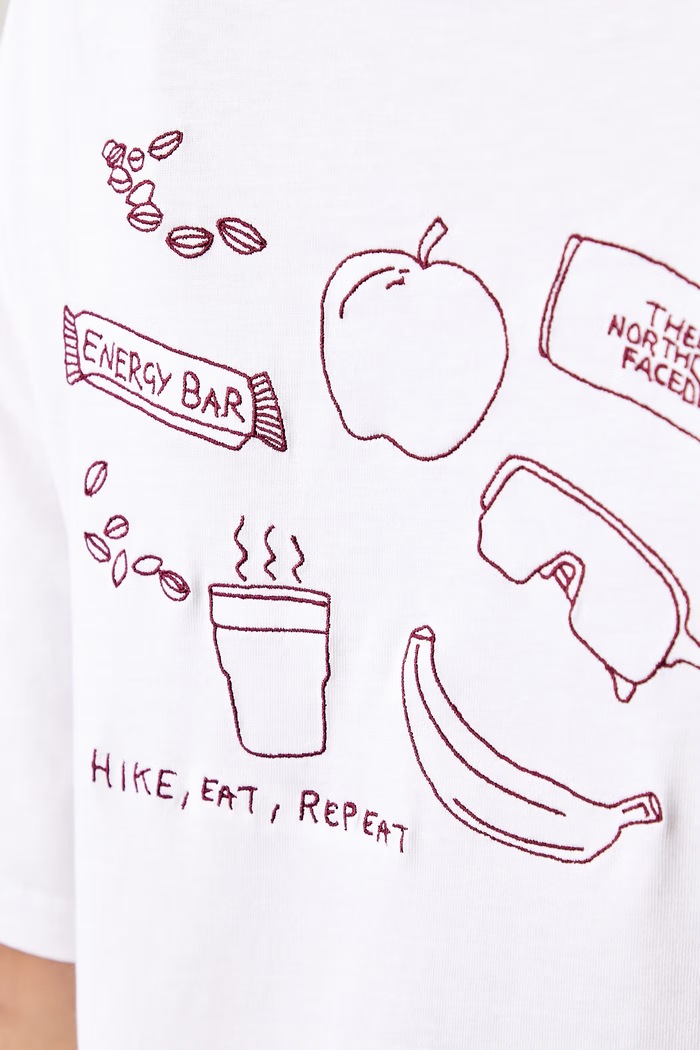 ENERGY BAR
THE
NORTH
FACE
HIKE, EAT, REPEAT